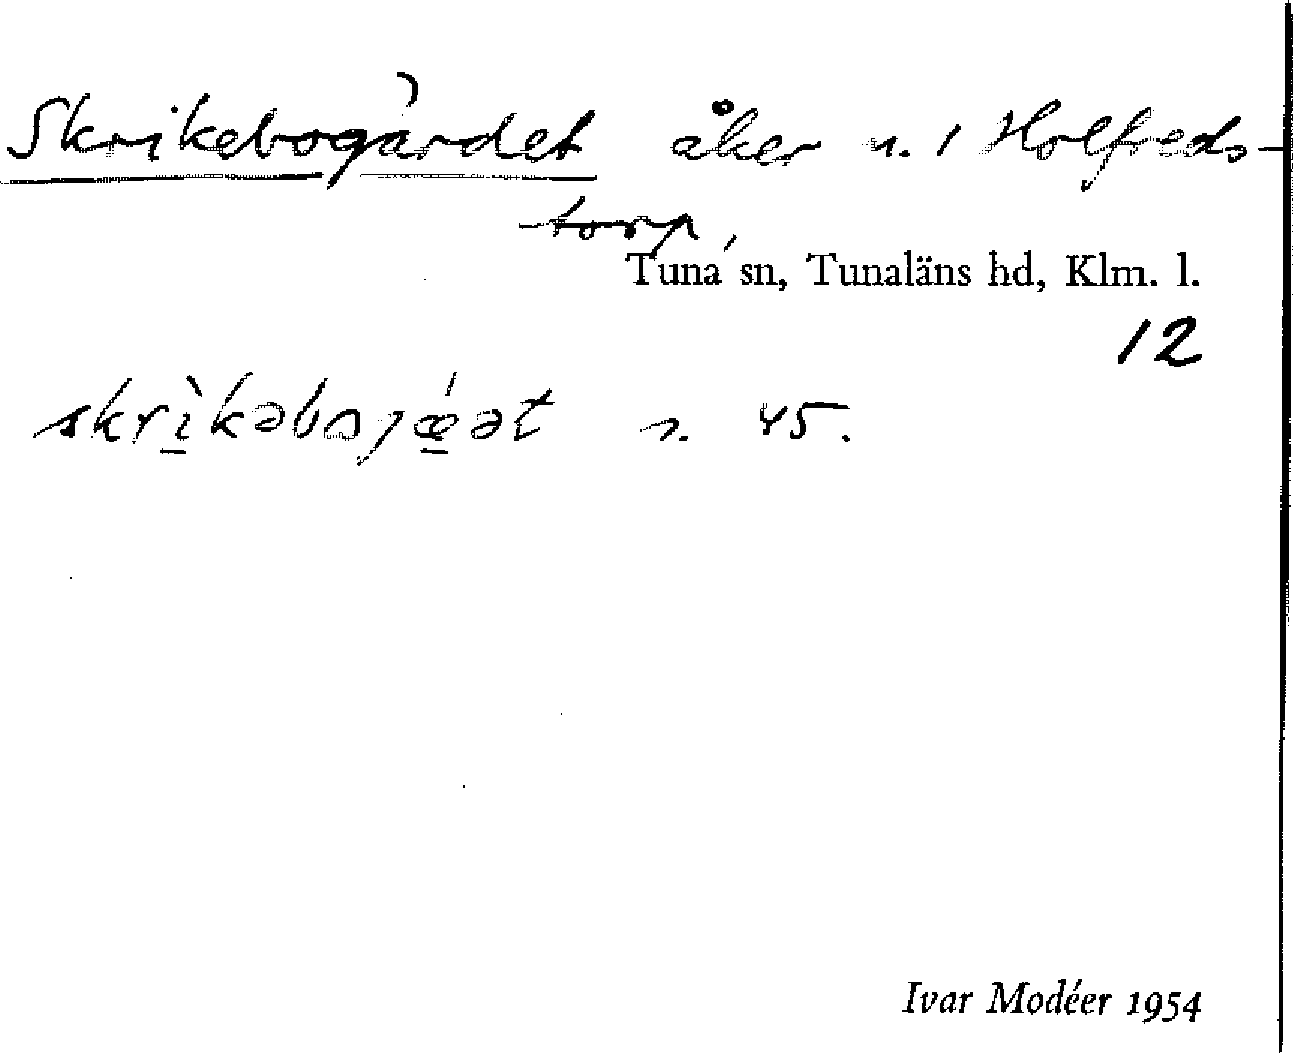 Skrikebogärdet åker n. 1 Holfreds-
torp,
Tuna sn, Tunaläns hd, Klm. l.
12
skrìkəboȷǽət n. 45.
Ivar Modéer 1954